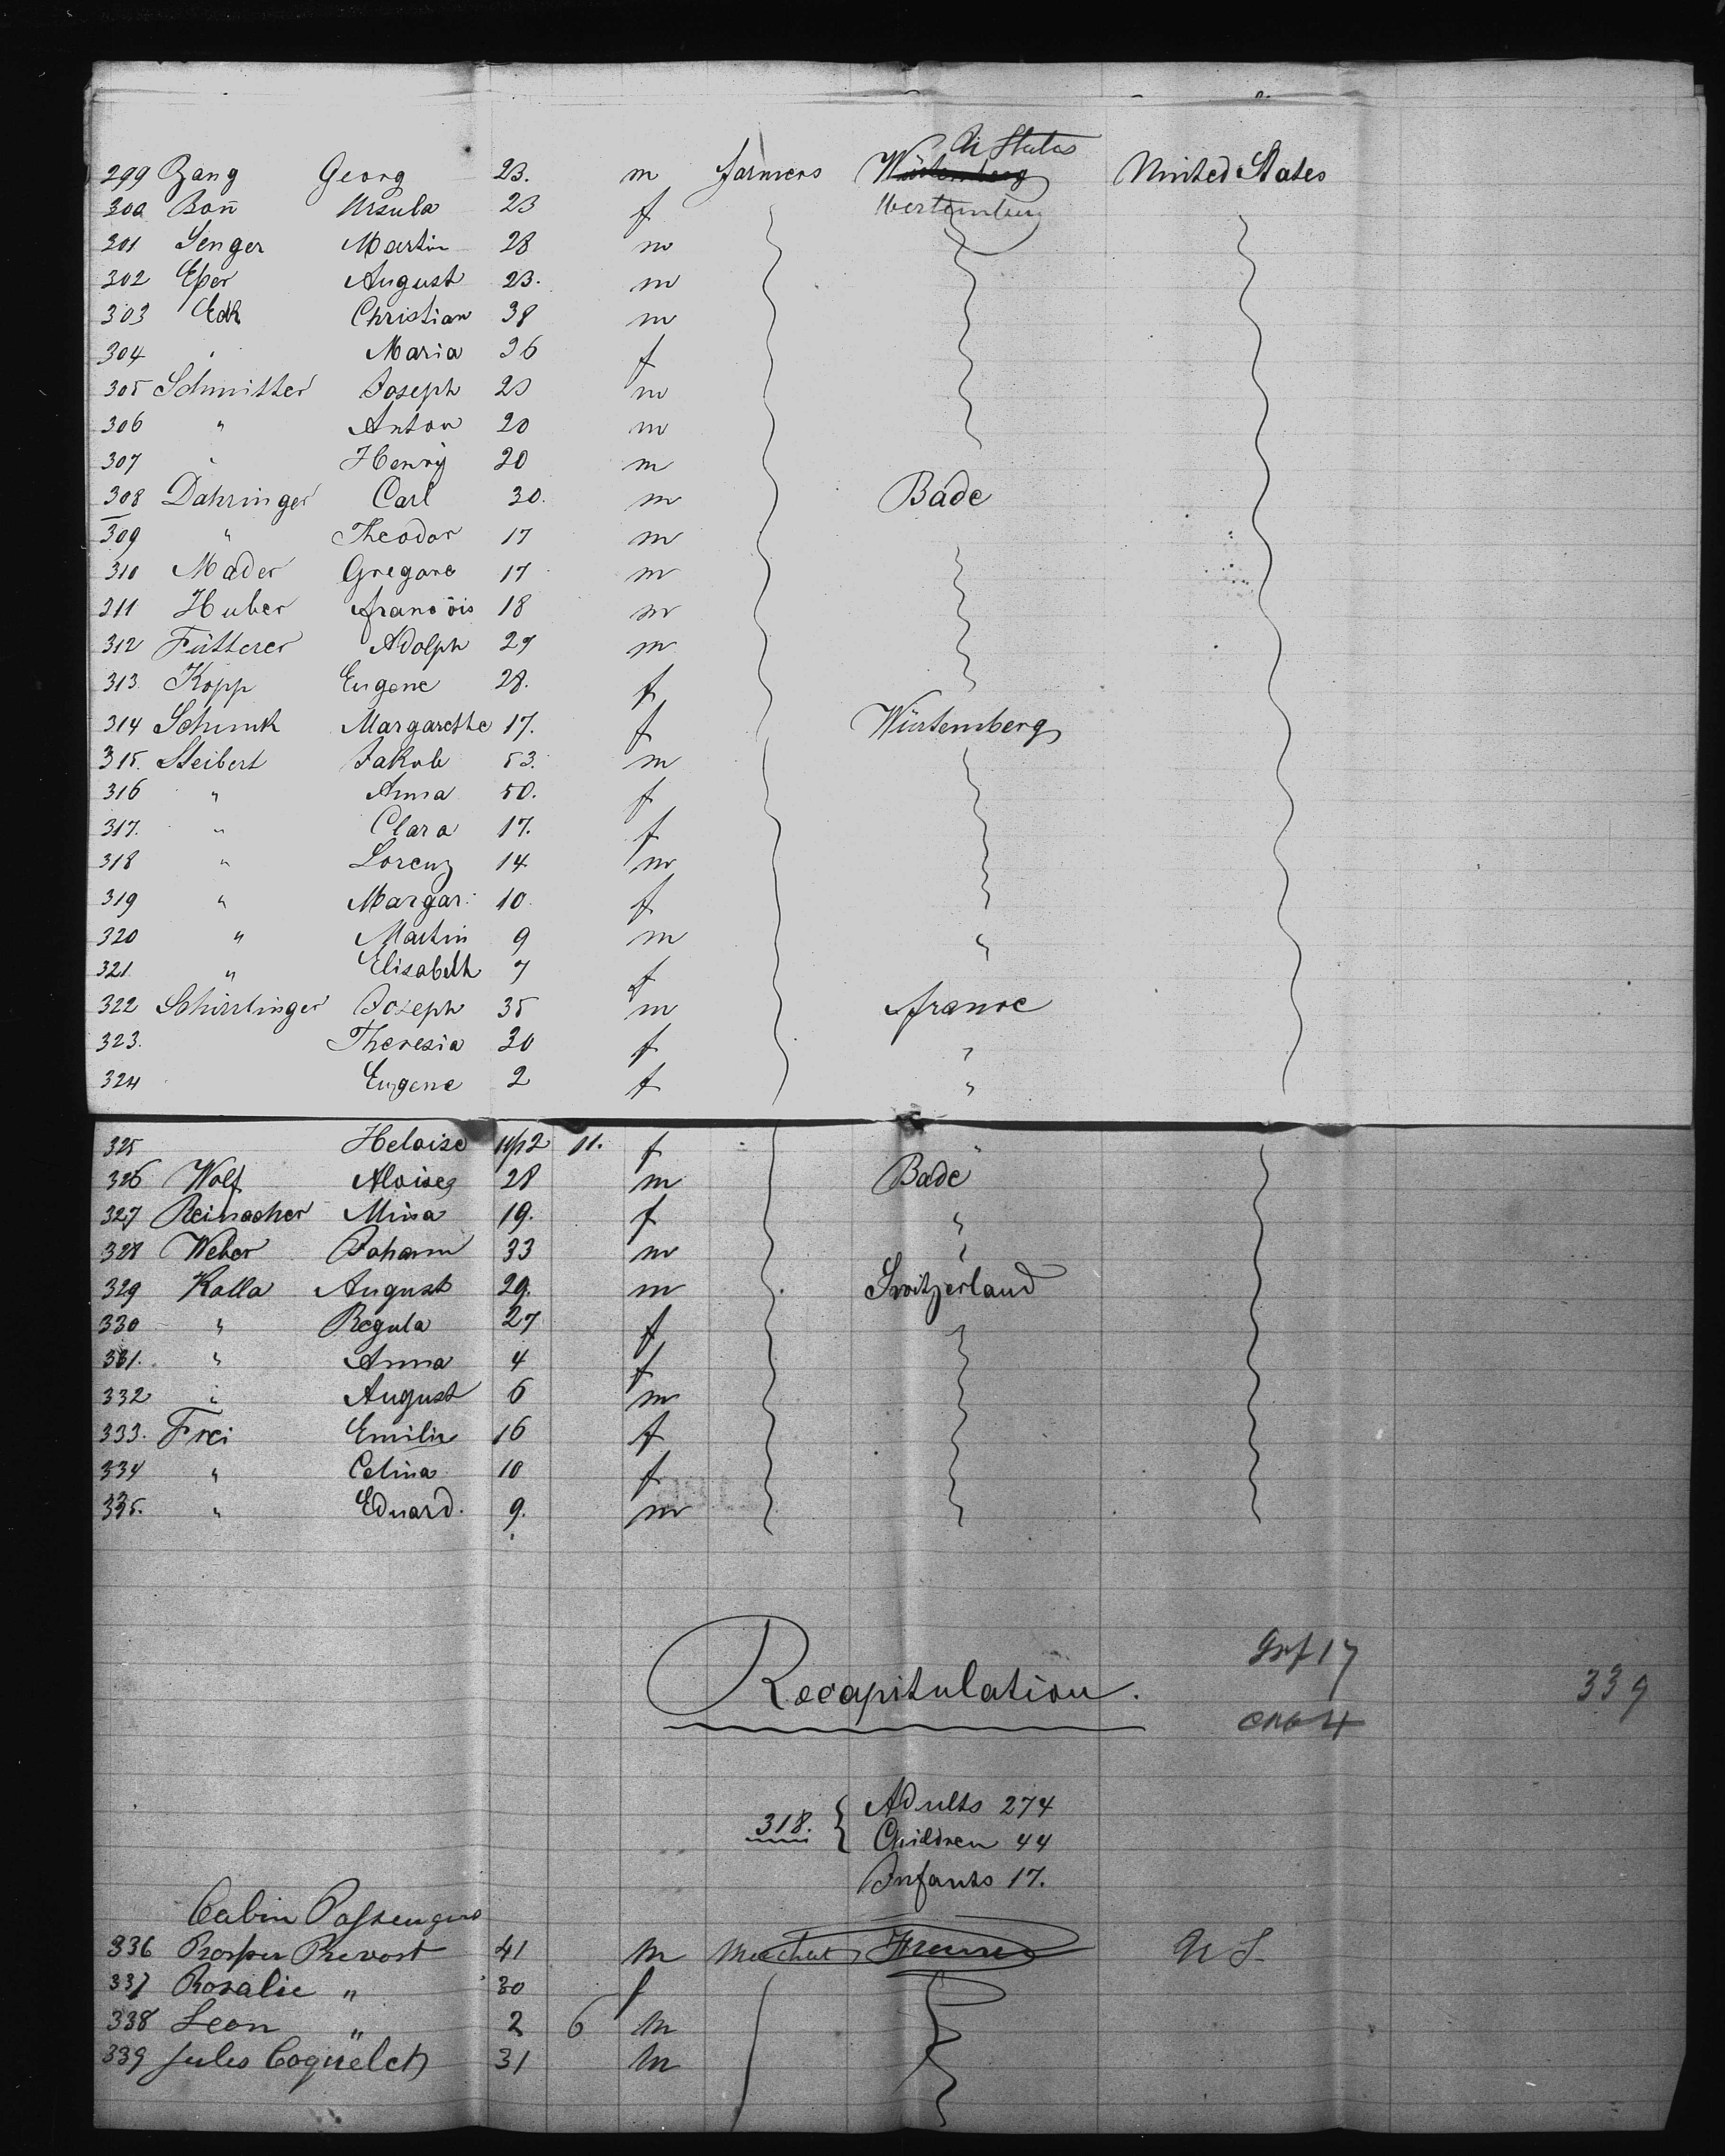 Un States
299 Zang Georg 23. m farmers Würtemberg United States
300 Bon̄ Ursula 23 f Wertemberg
301 Senger Martin 28 m
302 Eßer August 23. m
303 Eck Christian 38 m
304 " Maria 36 f
305 Schmitter Joseph 23 m
306 " Anton 20 m
307 " Henry 20 m
308 Dahringer Carl 30. m Bade
309 " Theodor 17 m
310 Mader Gregore 17 m
311 Huber francois 18 m
312 Fütterer Adolph 27 m
313. Kopp Eugene 28. f
314 Schunk Margarethe 17. f Würtemberg
315. Steibert Jakob 53. m
316 " Anna 50. f
317. " Clara 17. f
318 " Lorenz 14 m
319 " Margar: 10. f
320 " Martin 9 m "
321 " Elisabeth 7 f
322 Joseph 35 m france
323. Theresia 30 f "
324 Eugene 2 f "
325 Heloise 11/12 11. f "
326 Wolf Aloise 28 m Bade
327 Reinacher Mina 19. f "
328 Weber Johann 33 m "
329 Kalla August 29. m Switzerland
330 " Regula 27 f
331. " Anna 4 f
332 " August 6 m
333. Frei Emilie 16 f
334 " Celina 10 f
335. " Eduard. 9. m
Inf 17
Recapitulation. 339
Adults 274
318. { Children 44
Infants 17.
Cabin Passengers
336 Prosper Prevost 41 m Merchant France U S
337 Rosalie " 30 f
338 Leon " 2 6 m
339 Jules 31 m